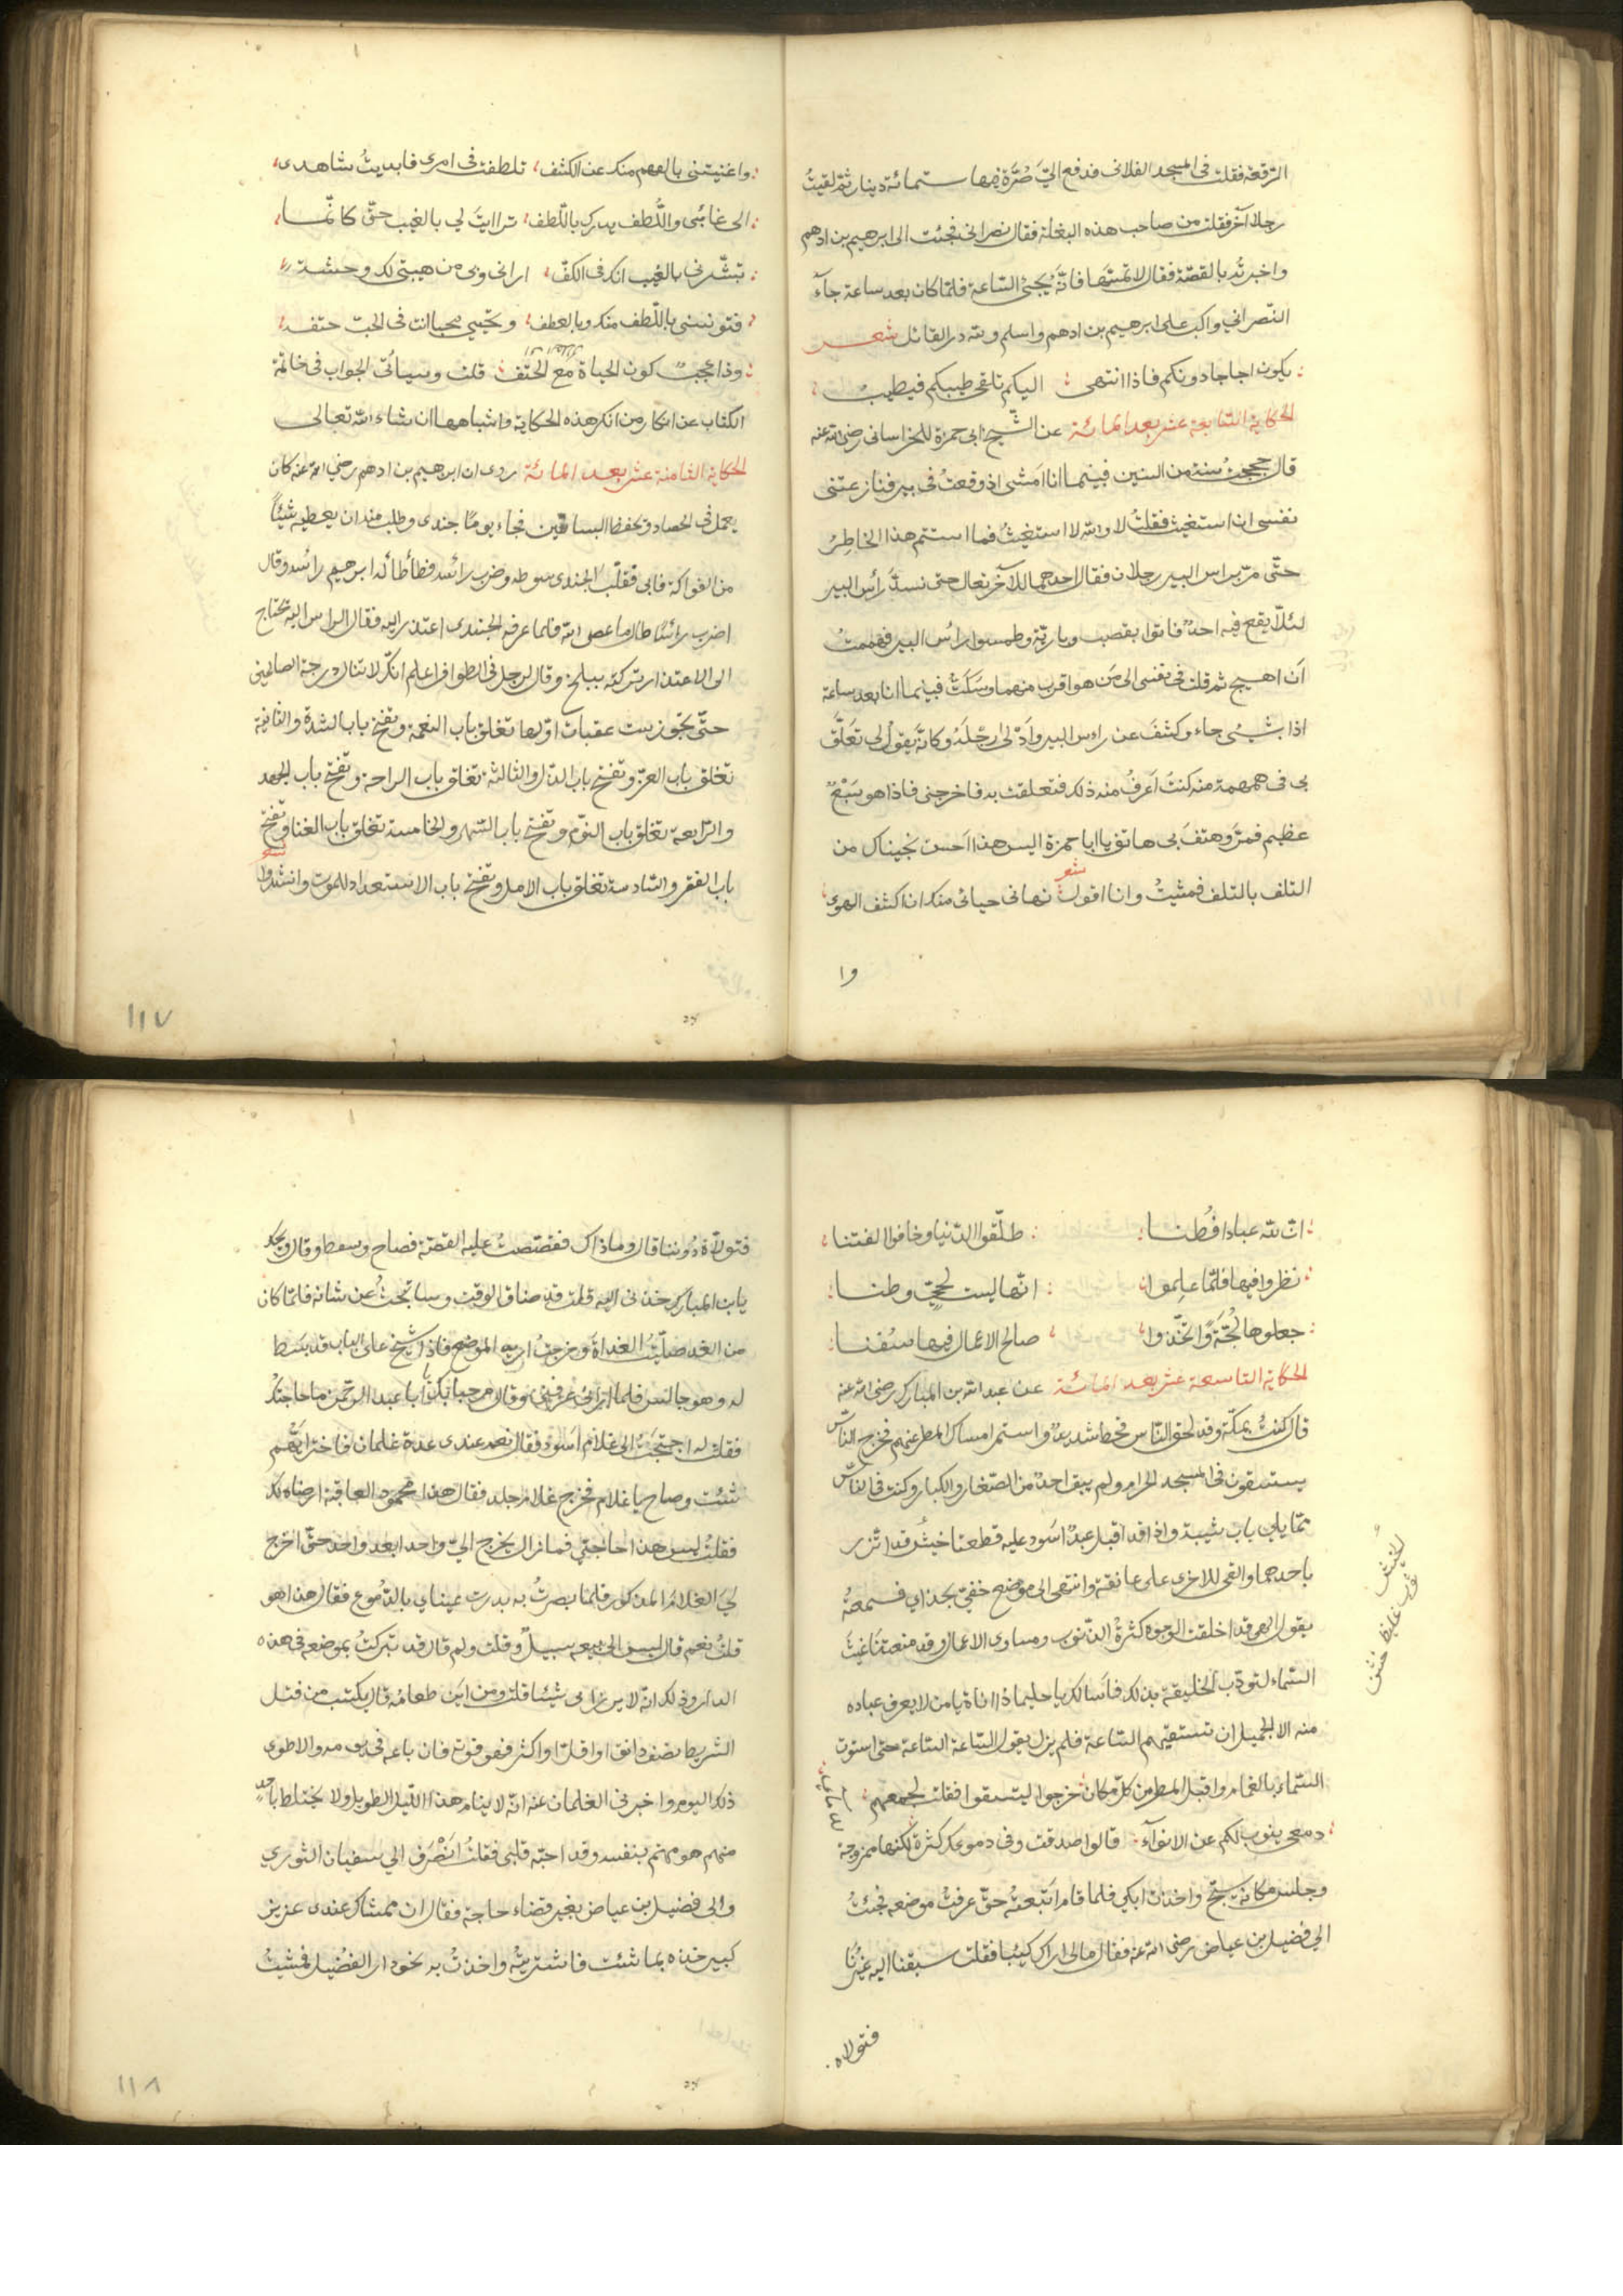 الرقعة فقلت في المسجد الفلاني فدفع اليّ صُرَّة فيها ستمائة دينار ثم لقيتُ
رجلا آخر فقلت من صاحب هذه البغلة فقال نصراني فجئت الى ابرهيم بن ادهم
واخبرتُه بالقصّة فقال لا تمسّها فانّه يجئ الساعة فلمّا كان بعد ساعة جآء
النّصراني واكبّ على ابرهيم بن ادهم واسلم ولله در القائل شعر
يكون اجاجا دونكم فاذا انتهى اليكم تلقى طيبكم فيطيبُ
الحكاية السابعة عشر بعد المائة عن الشيخ ابي حمزة الخراساني رضي الله عنه
قال حججتُ سنة من السنين فبينما انا امشي اذ وقعتُ في بير فنازعتني
نفسي ان استغيث فقلتُ لا والله لا استغيثُ فما استتم هذا الخاطِرُ
حتّى مرّ براس البير رجلان فقال احدهما للآخر تعال حتى نسدَّ رأس البير
لئلّا يقع فيه احدٌ فاتوا بقصب وباريّة وطمسوا رأس البير فهممتُ
اَن اصيح ثم قلت في نفسي الى مَن هو اقرب منهما وسَكَتُّ فبينما انا بعد ساعة
اذا بشئ جاء وكشفَ عن راس البير وَاَدْلى رِجْلَهُ وكانّه يقول لي تَعَلَّق
بي في همهمة منه كنتُ اَعرِفُ منه ذلك فتعلقت به فاخرجني فاذا هو سَبُعٌ
عظيم فمرَّ وهتفَ بي هاتف يا ابا حمزة اليس هذا اَحسن نجيناك من
التلف بالتلف فمشيتُ وانا اقول شعر نهاني حيائي منك ان اكشف الهوى
وا
واغنيتني بالفهم منك عن الكشف تلطفت في امري فابديتُ شاهدي
الى غائبي واللُّطف يدرك باللّطف تراايتَ لي بالغيب حتّى كانّما
تبشّرني بالغيب انك في الكفّ اراني وبي من هيبتي لك وحشة
فتونسني باللّطف منك وبالعطف وتحيي محبا انت في الحبّ حتفه
وذا عجبٌ كون الحياة مع الحتف قلت وسيأتي الجواب في خاتمة
الكتاب عن انكار من انكر هذه الحكاية واشباهها ان شاء الله تعالى
الحكاية الثامنة عشر بعد المائة روى ان ابرهيم بن ادهم رضي الله عنه كان
يعمل في الحصاد وتحفظ البساتين فجاء يومًا جندي وطلب منه ان يعطيه شيئًا
من الفواكة فابى فقلّب الجندي سوطه وضرب رائسه فطأطأ له ابرهيم رائسه وقال
اضرب رائسًا طال ما عصى الله فلما عرفه الجندي اعتذر اليه فقال الراس اليه تحتاج
الى الاعتذار تركته ببلخ وقال لرجل في الطواف اعلم انّك لا تنال درجة الصالحين
حتّى تجوز ست عقبات اوّلها تغلق باب النعمة وتفتح باب الشدة والثانية
تغلق باب العزّ وتفتح باب الذل والثالثة تغلق باب الراحة وتفتح باب الجهد
والرّابعة تغلق باب النوم وتفتح باب السّهر والخامسة تغلق باب الغنا وتفتح
باب الفقر والسّادسة تغلق باب الامل وتفتح باب الاستعداد للموت وانشدوا شعر
١١٧
انّ لله عبادا فُطَنا طلّقوا الدّنيا وخافوا الفتنا
نظروا فيها فلمّا علِموا انّها ليست لحيّ وطنا
جعلوها لُجَّةً واتّخذوا صالح الاعمال فيها سُفنا
الحكاية التاسعة عشر بعد المائة عن عبد الله بن المبارك رضي الله عنه
قال كنتُ بمكّة وقد لحق النّاس قحط شديدٌ واستمر امساك المطر عنهم فخرج النّاسُ
يستسقون في المسجد الحرام ولم يبق احدٌ من الصّغار والكبار وكنت في النّاس
ممّا يلي باب شيبة واذا قد اقبل عبدٌ اسَود عليه قطعتا خيشٍ قد اتّزر
باحدهما والقى للاخرى على عاتقه وانتهى الى موضح خفيّ بحذاي فسمعتُهُ
يقول الهي قد اخلقت الوجوه كثرةُ الذّنوب ومساوي الاعمال وقد منعتنا غيثَ
السّماء لتودّب الخليقة بذلك فاَسالك يا حليما ذا اناة يا من لا يعرف عباده
منه الا الجميل ان تسقيهم الساعة فلم يزل يقول السّاعة الساعة حتى استوت
السّماء بالغمام واقبل المطر من كلّ مكان خرجوا ليستسقوا فقلت لجمعهم
دمعي ينوب لكم عن الانوآء قالوا صدقت وفي دموعك كثرة لكنها ممزوجة
وجلس مكانه يسبّح واخذت ابكي فلما قام اتّبعتُه حتّى عرفتُ موضعه فجئتُ
الي فُضيل بن عياض رضي الله عنه فقال مالي اراك كئيبا فقلت سبقنا اليه غيرُنا
فتولاه
الخيش
ثوب غليظ خشن
فتولاّه دُوننا قال وما ذاك فقصصتُ عليه القصّة فصاح وسقط وقال ويحك
يا بن المبارك خذني اليه قلت قد ضاق الوقت وسابحثُ عن شانه فلمّا كان
من الغد صلّيتُ الغداةَ وخرجتُ اريد الموضح فاذا شيخ على الباب قد بَسَط
له وهو جالس فلما اراني عرفني وقال مرحبا بك يا ابا عبد الرحمن ما حاجتك
فقلت له احتجتُ الى غلام اَسْود فقال نعم عندي عدة غلمان فاختر ايّهم
شئت وصاح يا غلام فخرج غلام جلد فقال هذا محمود العاقبة ارضاه لك
فقلتُ ليس هذا حاجتي فما زال يخرج اليّ واحدا بعد واحد حتّى اخرج
ليَ الغلامَ المذكور فلمّا بصرتُ به بدرت عيناي بالدّموع فقال هذا هو
قلتُ نعم قال ليس الى بيعه سبيلٌ وقلت ولم قال قد تبركتُ بموضعه في هذه
الدار وذلك انّه لا يرزاني شيئًا قلت ومن اَين طعامُه قال يكسب من فتل
الشريط نصف دانق او اقل او اكثر فهو قوته فان باعه في يومه والا طوى
ذلك اليوم واخبرني الغلمان عنه انّه لا ينام هذا اللّيل الطويل ولا يختلط باحدٍ
منهم هو مهتم بنفسه وقد احبّه قلبي فقلتُ اَنْصَرَف الي سفيان الثوري
والى فضيل بن عياض بغير قضاء حاجة فقال ان ممشاك عندي عزيز
كبير خذه بما شئت فاشتريتُه واخذتُ به نحو دار الفُضيل فمشيتُ
١١٨